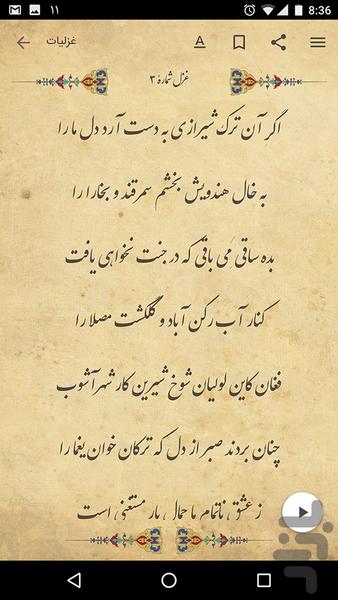 ۱۱ 8:36
غزلیات A
غزل شمارهٔ ۳
اگر آن ترک شیرازی به دست آرد دل ما را
به خال هندویش بخشم سمرقند و بخارا را
بده ساقی می باقی که در جنت نخواهی یافت
کنار آب رکن آباد و گلگشت مصلا را
فغان کاین لولیان شوخ شیرین کار شهرآشوب
چنان بردند صبر از دل که ترکان خوان یغما را
ز عشق ناتمام ما جمال یار مستغنی است